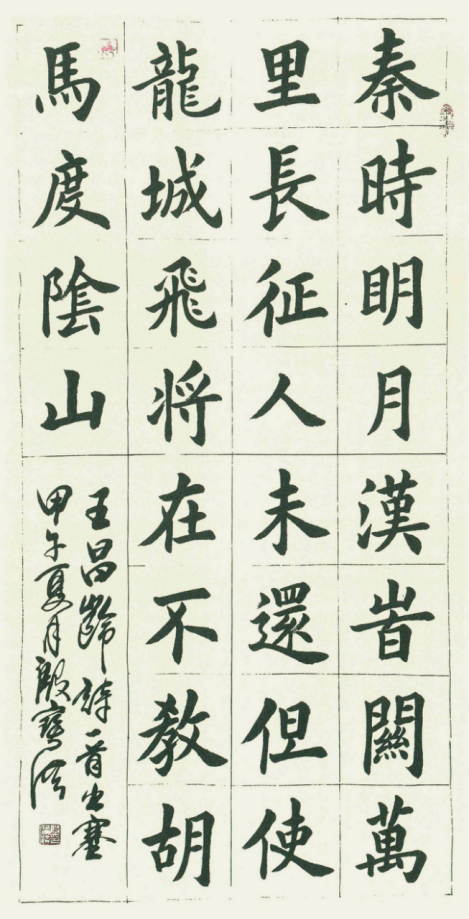 秦時明月漢旹關萬
里長征人未還但使
龍城飛将在不教胡
馬度隂山
王昌齡詩一首出塞
甲午夏月殷寶